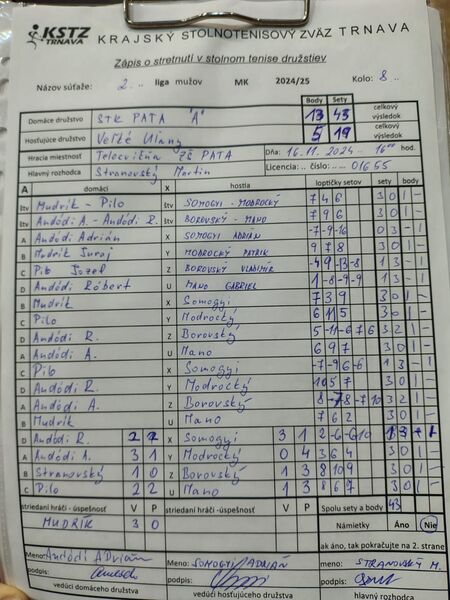 KSTZ TRNAVA KRAJSKÝ STOLNOTENISOVÝ ZVÄZ TRNAVA
Zápis o stretnutí v stolnom tenise družstiev
Názov súťaže: 2. liga mužov MK 2024/25 Kolo: 8
Body Sety
Domáce družstvo STK PATA "A" 13 43 celkový výsledok
Hosťujúce družstvo Veľké Úľany 5 19 celkový výsledok
Hracia miestnosť Telocvičňa ZŠ PATA Dňa: 16.11.2024 - 1600 hod.
Hlavný rozhodca Stranovský Martin Licencia.. číslo.... 01655
A domáci X hostia loptičky setov sety body
štv Mudrík - Pilo štv SOMOGYI - MODROCKÝ 7 4 6 3 0 1 -
štv Andódi A. - Andódi R. štv BOROVSKÝ - MANO 7 9 6 3 0 1 -
A Andódi Adrián X SOMOGYI ADRIÁN -7 -9 -16 0 3 - 1
B Mudrík Juraj Y MODROCKÝ PATRIK 9 7 8 3 0 1 -
C Pilo Jozef Z BOROVSKÝ VLADIMÍR -4 9 -13 -8 1 3 - 1
D Andódi Róbert U MANO GABRIEL 1 -8 -9 -9 1 3 - 1
B Mudrík X Somogyi 7 3 9 3 0 1 -
C Pilo Y Modrocký 6 11 5 3 0 1 -
D Andódi R. Z Borovský 5 -11 -6 7 6 3 2 1 -
A Andódi A. U Mano 6 9 7 3 0 1 -
C Pilo X Somogyi -7 -9 6 -6 1 3 - 1
D Andódi R. Y Modrocký 10 5 7 3 0 1 -
A Andódi A. Z Borovský 8 -7 8 -7 10 3 2 1 -
B Mudrík U Mano 7 6 2 3 0 1 -
D Andódi R. 2 2 X Somogyi 3 1 2 -6 -6 -10 1 3 - 1
A Andódi A. 3 1 Y Modrocký 0 4 3 6 4 3 0 1 -
B Stranovský 1 0 Z Borovský 1 3 8 10 9 3 0 1 -
C Pilo 2 2 U Mano 1 3 8 6 7 3 0 1 -
striedaní hráči - úspešnosť V P striedaní hráči - úspešnosť V P Spolu sety a body 43
MUDRÍK 3 0 Námietky Áno Nie
ak áno, tak pokračujte na 2. strane
Meno: Andódi ADrián Meno: SOMOGYI ADRIÁN meno: STRANOVSKÝ M.
podpis: podpis: podpis:
vedúci domáceho družstva vedúci hosťujúceho družstva hlavný rozhodca